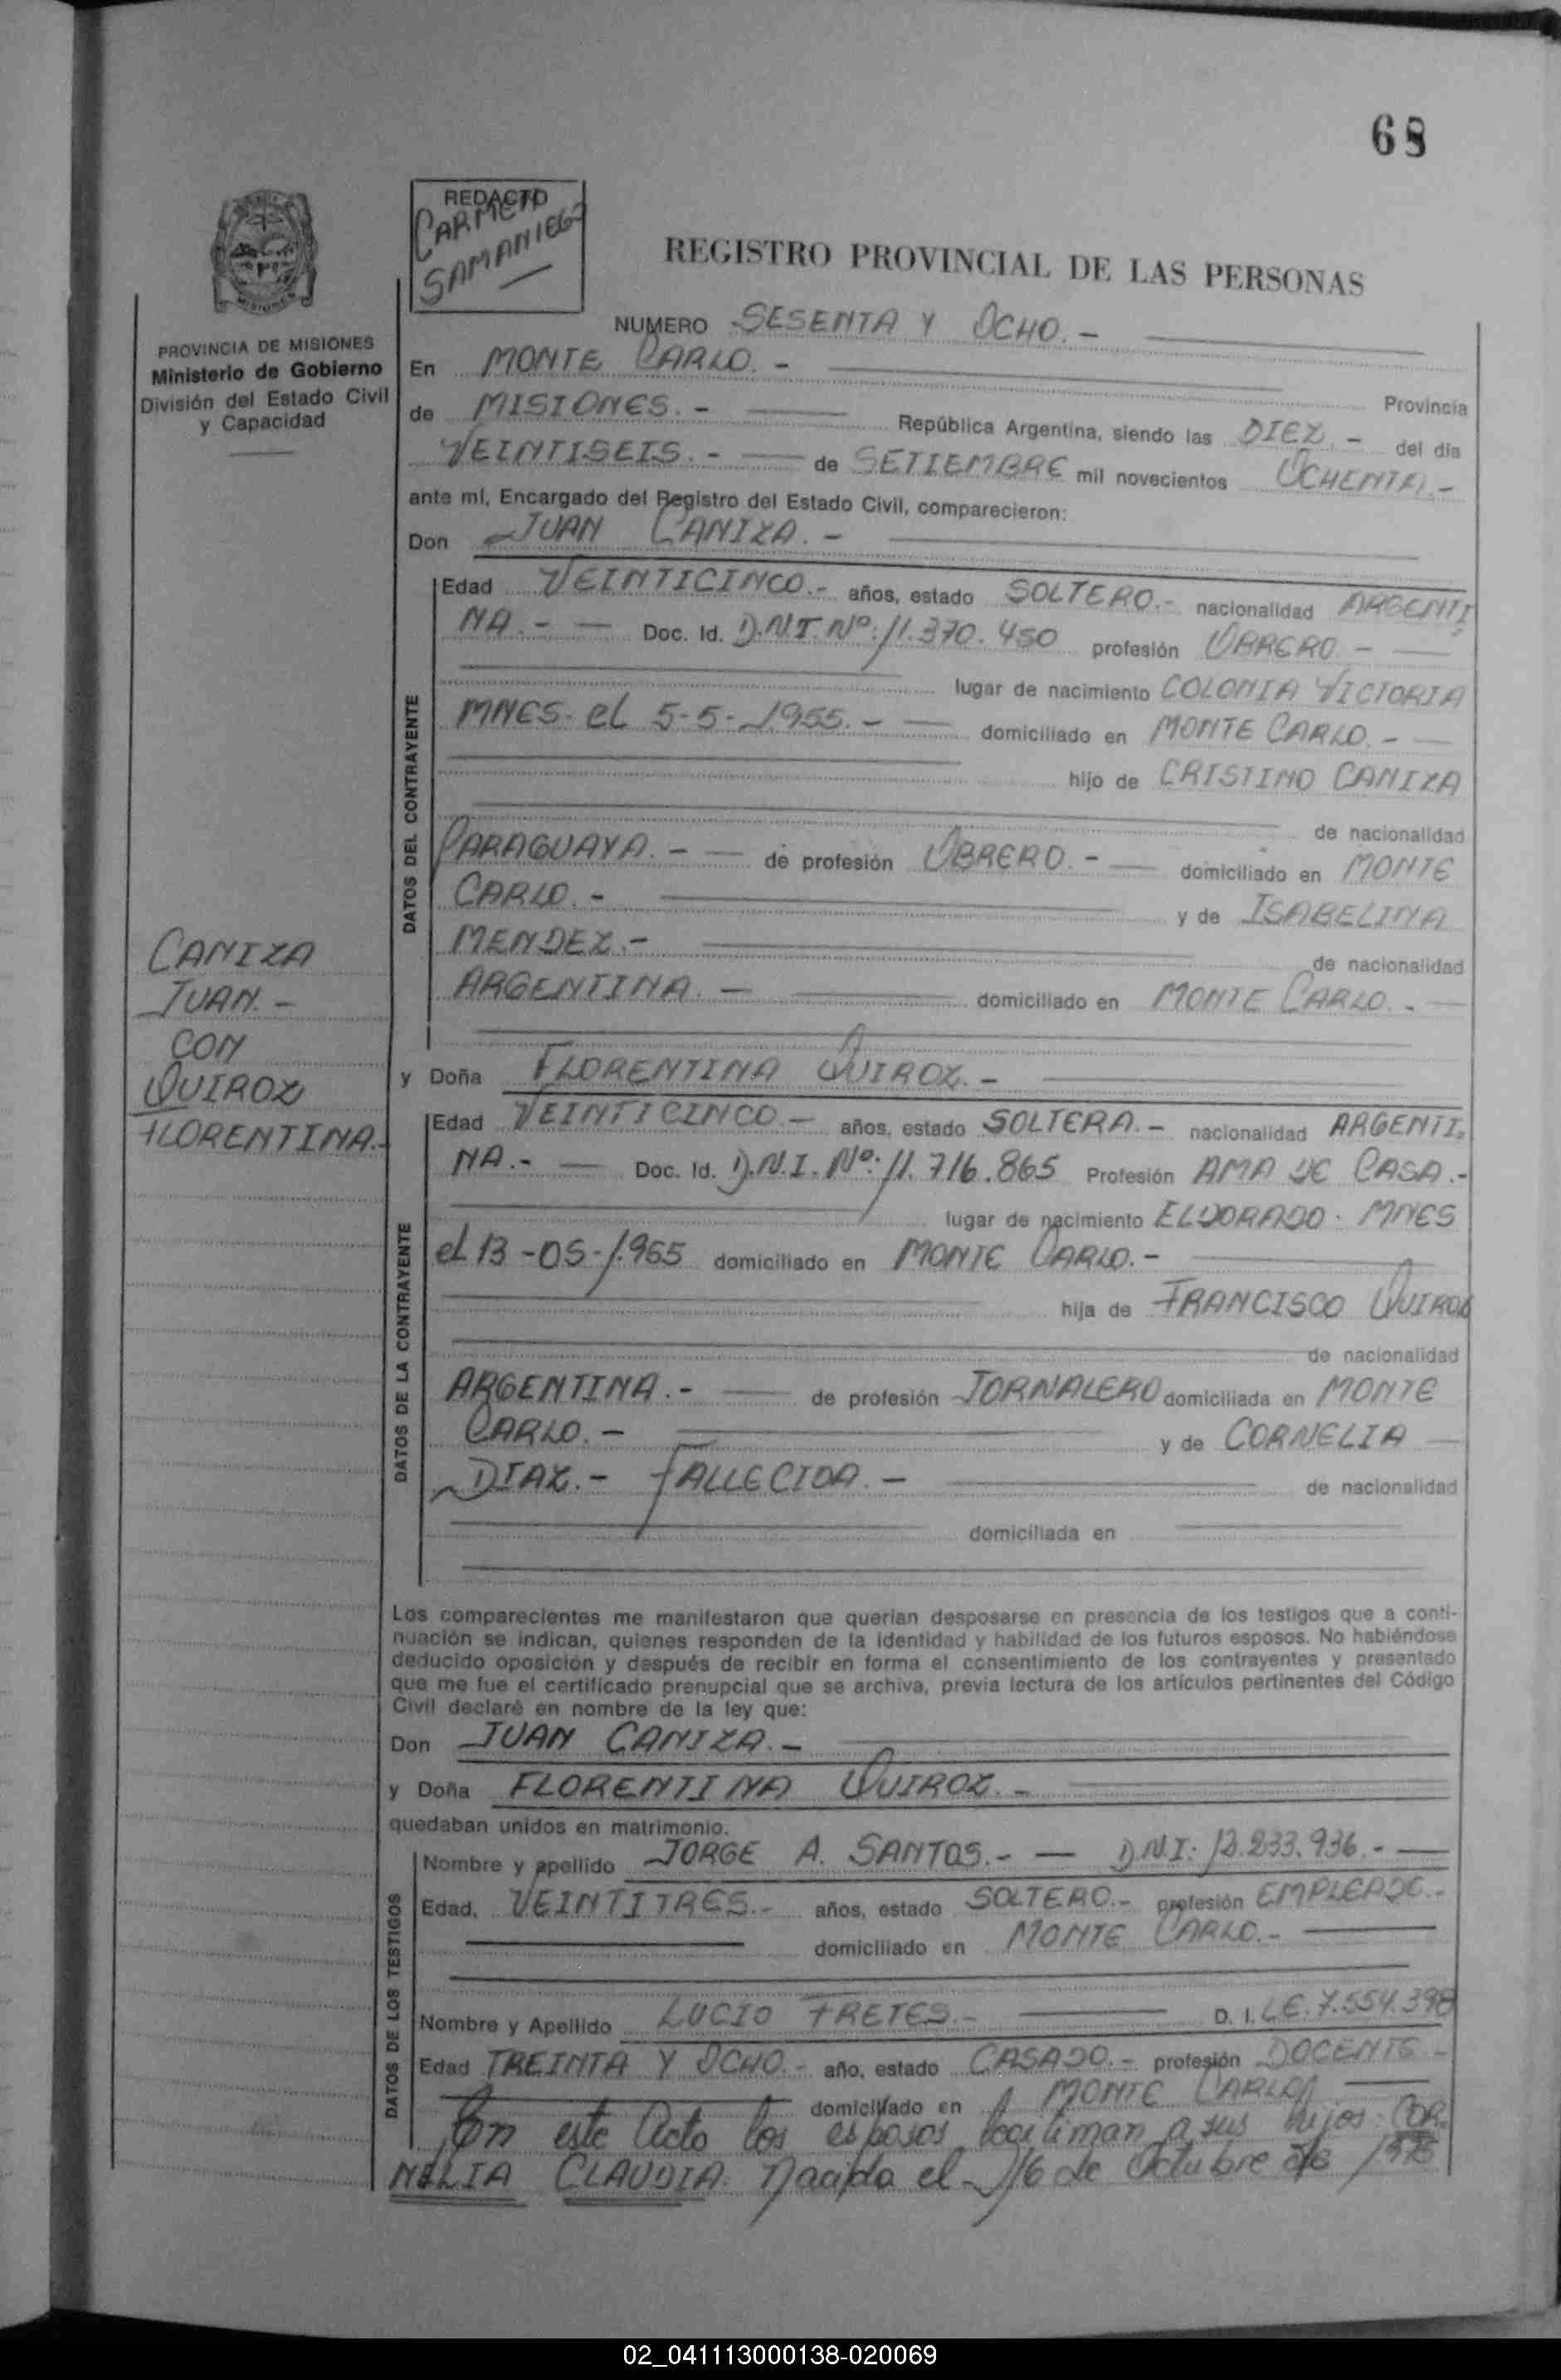 68
REDACTO
CARMELO
SAMANIEGO
REGISTRO PROVINCIAL DE LAS PERSONAS
PROVINCIA DE MISIONES
Ministerio de Gobierno
División del Estado Civil
y Capacidad
NUMERO SESENTA Y OCHO.-
En MONTE CARLO.-
Provincia
de MISIONES.- República Argentina, siendo las DIEZ.- del día
VEINTISEIS.- de SETIEMBRE mil novecientos OCHENTA.-
ante mí, Encargado del Registro del Estado Civil, comparecieron:
Don JUAN CANIZA.-
DATOS DEL CONTRAYENTE
Edad VEINTICINCO.- años, estado SOLTERO.- nacionalidad ARGENTI
NA.- Doc. Id. D.N.I. Nº: 11.370.450 profesión OBRERO.-
lugar de nacimiento COLONIA VICTORIA
MNES. el 5-5-1955.- domiciliado en MONTE CARLO.-
hijo de CRISTINO CANIZA
de nacionalidad
PARAGUAYA.- de profesión OBRERO.- domiciliado en MONTE
CARLO.- y de ISABELINA
MENDEZ.- de nacionalidad
ARGENTINA.- domiciliado en MONTE CARLO.-
CANIZA
JUAN.-
CON
QUIROZ
FLORENTINA.-
y Doña FLORENTINA QUIROZ.-
DATOS DE LA CONTRAYENTE
Edad VEINTICINCO.- años, estado SOLTERA.- nacionalidad ARGENTI
NA.- Doc. Id. D.N.I. Nº: 11.716.865 Profesión AMA DE CASA.-
lugar de nacimiento ELDORADO. MNES
el 13-05-1.955 domiciliado en MONTE CARLO.-
hija de FRANCISCO QUIROZ
de nacionalidad
ARGENTINA.- de profesión JORNALERO domiciliada en MONTE
CARLO.- y de CORNELIA
DIAZ.- FALLECIDA.- de nacionalidad
domiciliada en
Los comparecientes me manifestaron que querían desposarse en presencia de los testigos que a conti-
nuación se indican, quienes responden de la identidad y habilidad de los futuros esposos. No habiéndose
deducido oposición y después de recibir en forma el consentimiento de los contrayentes y presentado
que me fue el certificado prenupcial que se archiva, previa lectura de los artículos pertinentes del Código
Civil declaré en nombre de la ley que:
Don JUAN CANIZA.-
y Doña FLORENTINA QUIROZ.-
quedaban unidos en matrimonio.
DATOS DE LOS TESTIGOS
Nombre y apellido JORGE A. SANTOS.- D.N.I: 12.233.936.-
Edad, VEINTITRES.- años, estado SOLTERO.- profesión EMPLEADO.-
domiciliado en MONTE CARLO.-
Nombre y Apellido LUCIO FRETES.- D. I. L.E. 7.554.398
Edad TREINTA Y OCHO.- año, estado CASADO.- profesión DOCENTE.-
domiciliado en MONTE CARLO
En este Acto los esposos legitiman a sus hijos: COR
NELIA CLAUDIA. Nacida el 16 de Octubre de
02_041113000138-020069